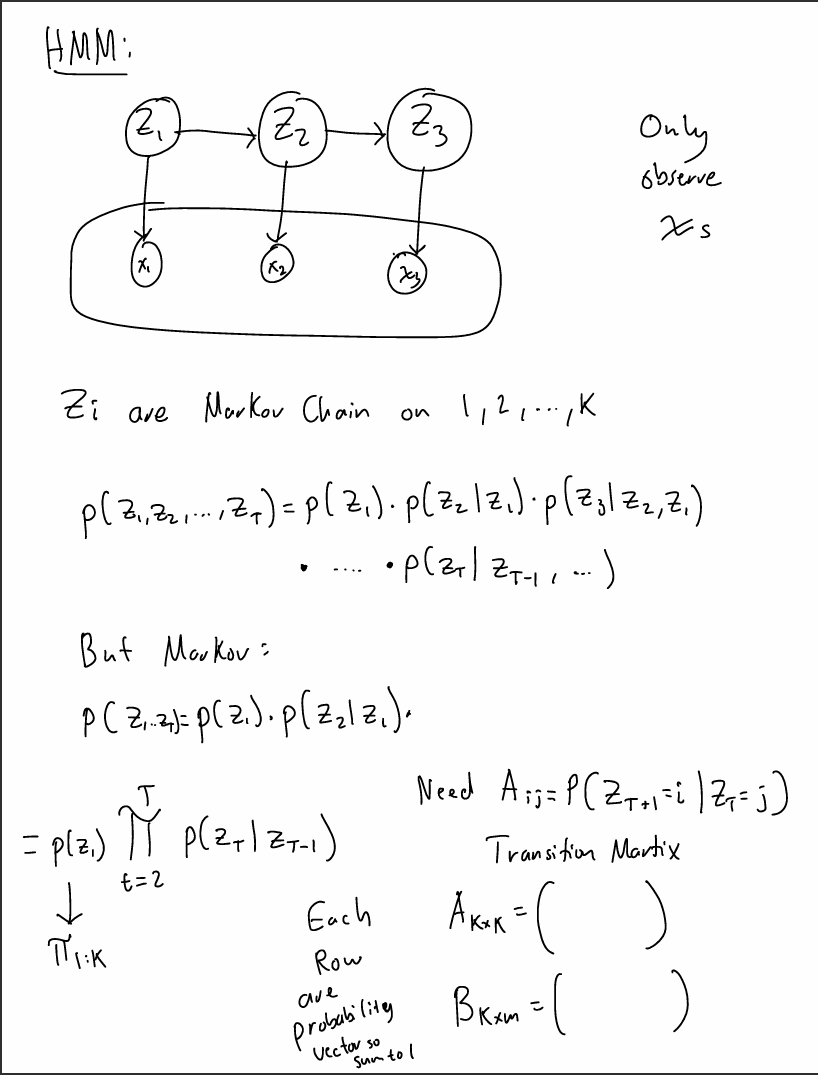 HMM:
Z₁ Z₂ Z₃
x₁ x₂ x₃
Only
observe
xs
Zi are Markov Chain on 1,2,...,K
p(z₁,z₂,...,z_T) = p(z₁)·p(z₂|z₁)·p(z₃|z₂,z₁)
· .... · p(z_T|z_{T-1},...)
But Markov:
p(z₁..z_T)= p(z₁)·p(z₂|z₁)·
= p(z₁) ∏_{t=2}^{T} p(z_T|z_{T-1})
↓
π_{1:K}
Need A_{ij} = P(Z_{T+1}=i|Z_T=j)
Transition Martix
Each
Row
are
probability
vector so
sum to 1
A_{K×K} = ( )
B_{K×m} = ( )